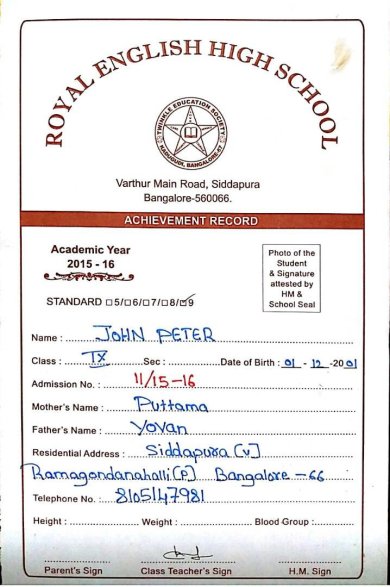 ROYAL ENGLISH HIGH SCHOOL
TWINKLE EDUCATION SOCIETY
HARUGUDI, BANGALORE-67
Varthur Main Road, Siddapura
Bangalore-560066.
ACHIEVEMENT RECORD
Academic Year
2015 - 16
Photo of the
Student
& Signature
attested by
HM &
School Seal
STANDARD □5/□6/□7/□8/☑9
Name : JOHN PETER
Class : IX Sec : Date of Birth : 01 - 12 - 2001
Admission No. : 11/15-16
Mother's Name : Puttama
Father's Name : Yovan
Residential Address : Siddapura (V)
Ramagondanahalli (P) Bangalore - 66
Telephone No. : 8105147981
Height : Weight : Blood Group :
Parent's Sign Class Teacher's Sign H.M. Sign